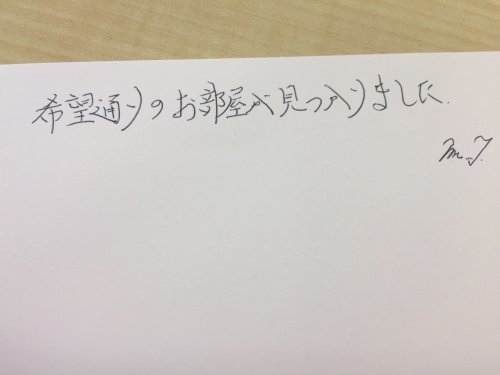 希望通りのお部屋が見つかりました.
M.J.